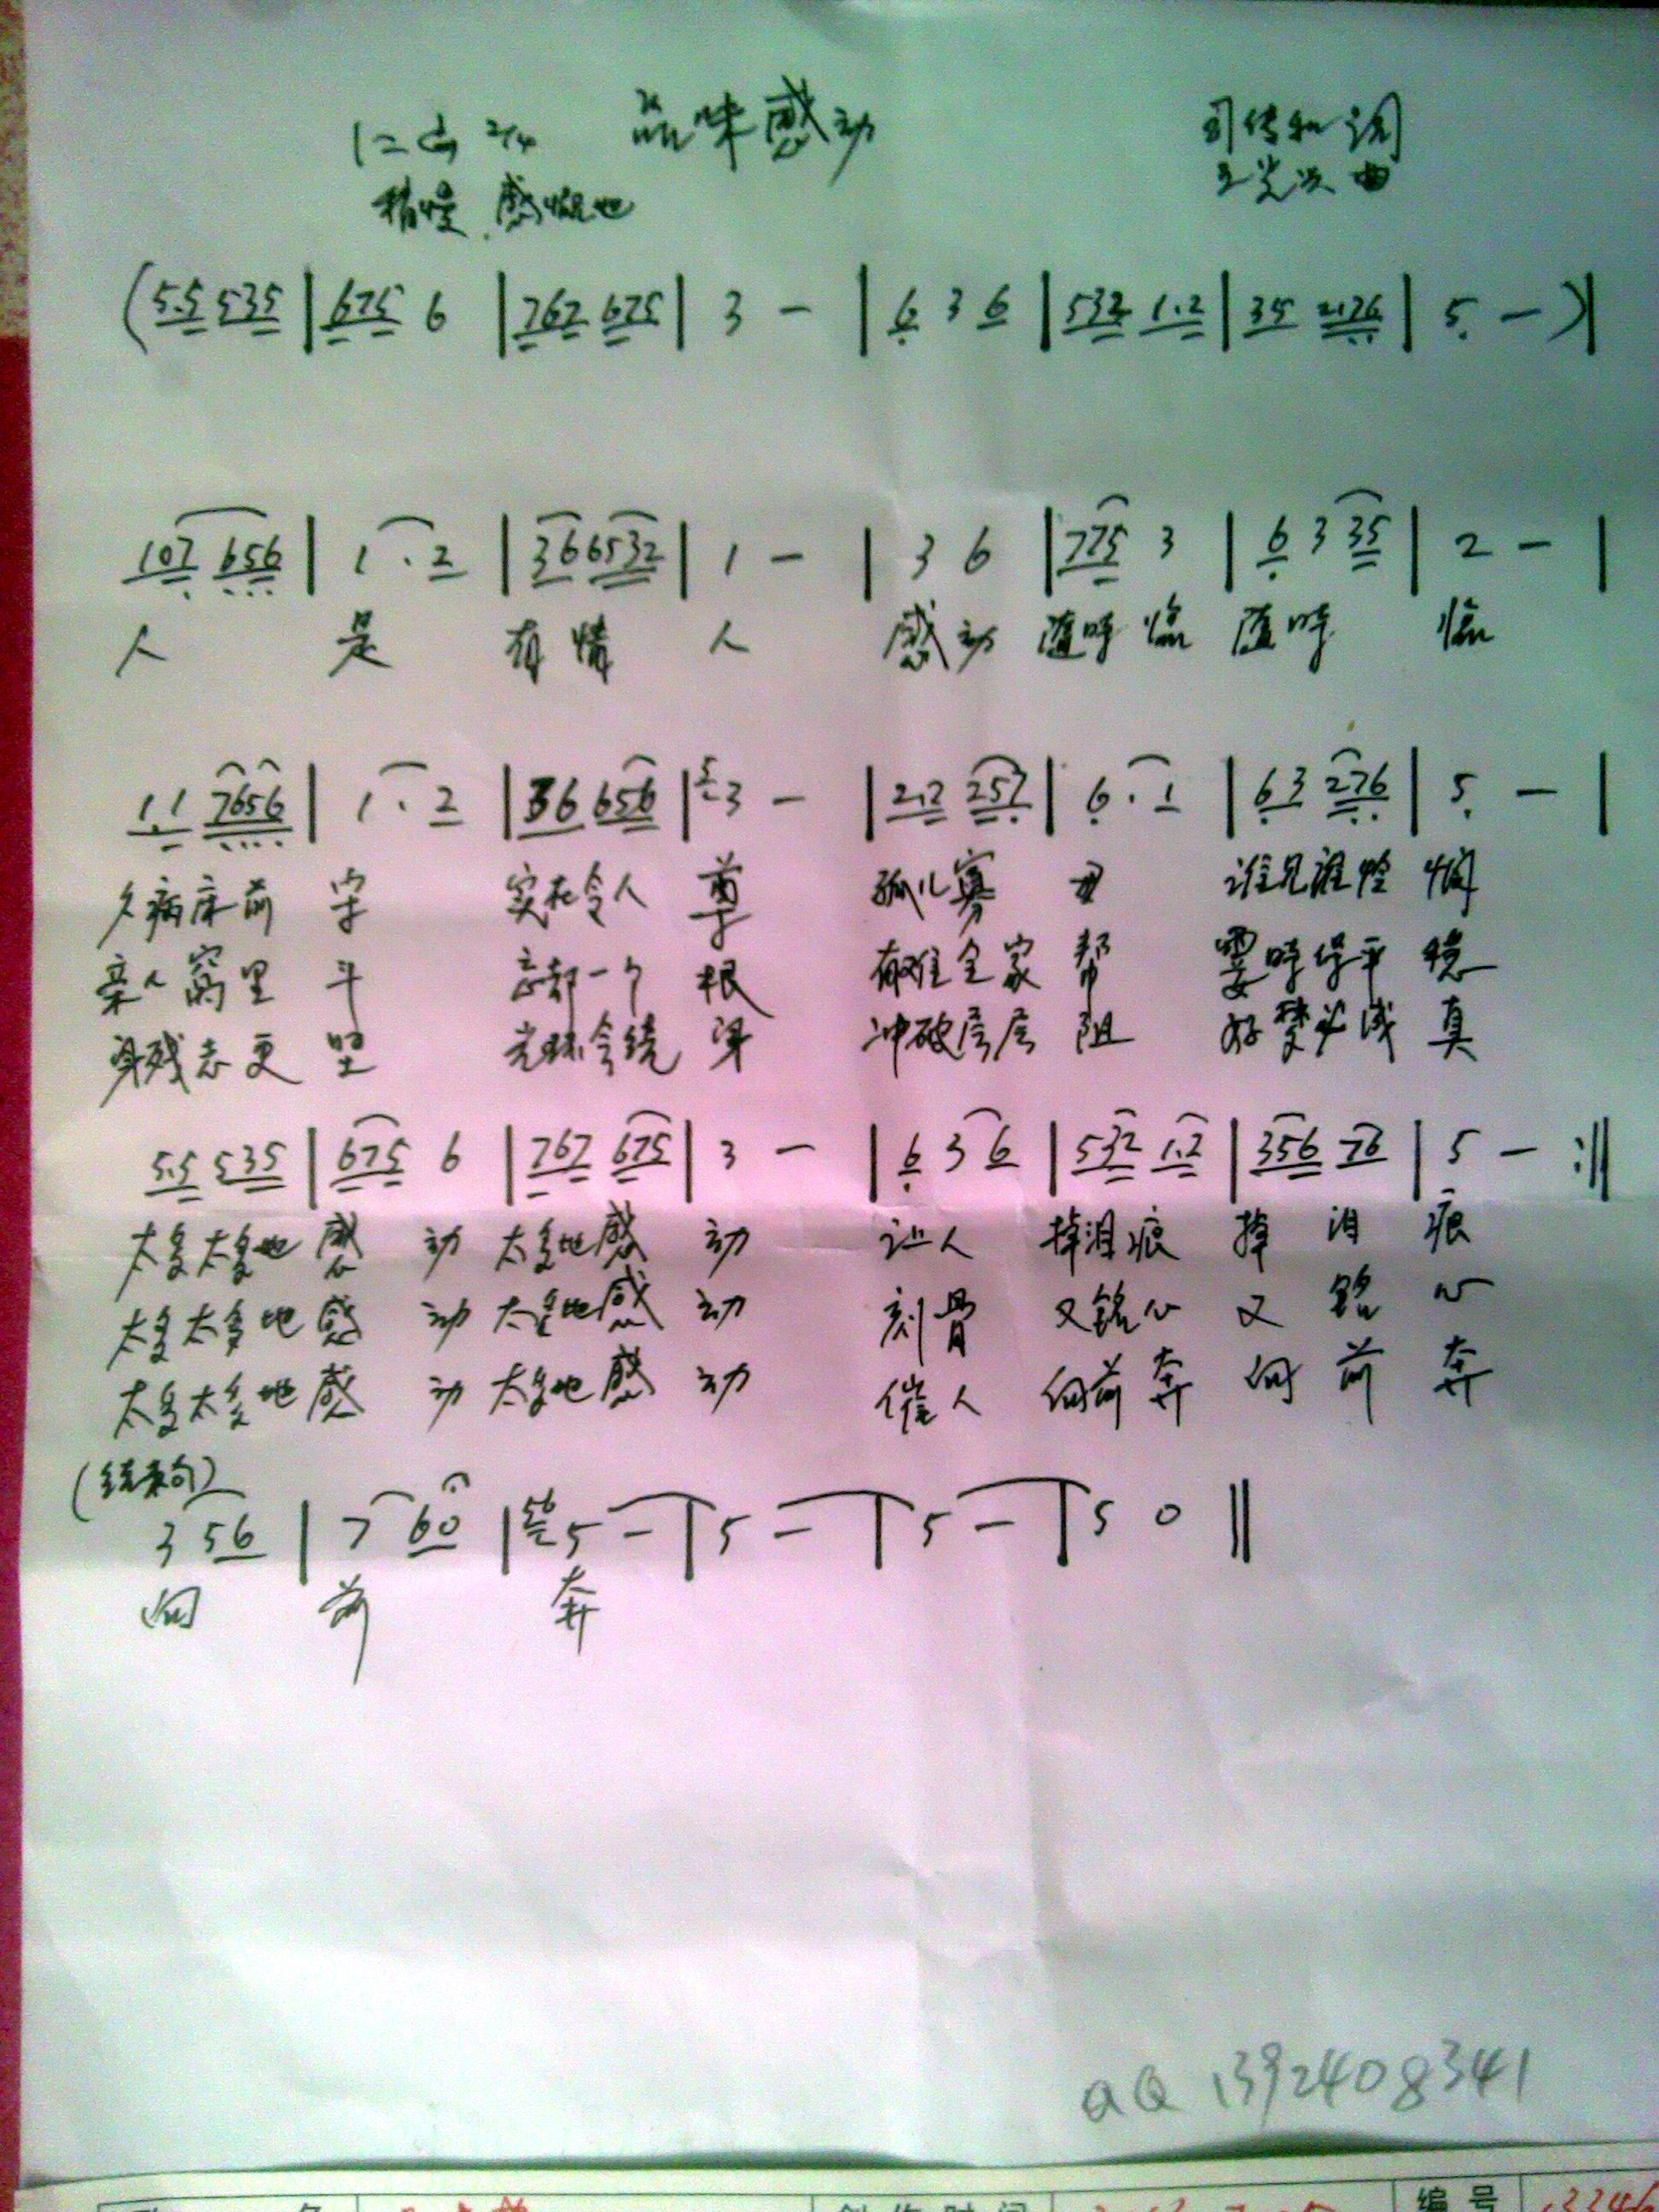 1=G 2/4 品味感动 司传和 词
稍慢 感慨地 曲
(5.5 535 | 675 6 | 767 675 | 3 - | 6 3 6 | 532 1.2 | 35 2.176 | 5 - )|
107 656 | 1 . 2 | 36 6532 | 1 - | 3 6 | 775 3 | 6 3 35 | 2 - |
人 是 有情 人 感动 随时 临 随时 临
1.1 7656 | 1 . 2 | 36 656 | 5 3 - | 2.2 257 | 6 . 1 | 63 276 | 5 - |
久病床前 守 实在令人 尊 孤儿寡 母 谁见谁怜 悯
亲人窝里 斗 忘却一个 根 有难全家 帮 霎时得平 稳
身残志更 坚 光环会绕 身 冲破层层 阻 好梦必成 真
5.5 535 | 675 6 | 767 675 | 3 - | 6 3 6 | 532 1.2 | 356 76 | 5 - :||
太多太多地 感 动 太多地感 动 让人 掉泪痕 掉 泪 痕
太多太多地 感 动 太多地感 动 刻骨 又铭心 又 铭 心
太多太多地 感 动 太多地感 动 催人 向前奔 向 前 奔
(结束句)
3 56 | 7 60 | 56 5 - | 5 - | 5 - | 5 0 ||
向 前 奔
QQ 1392408341
编号